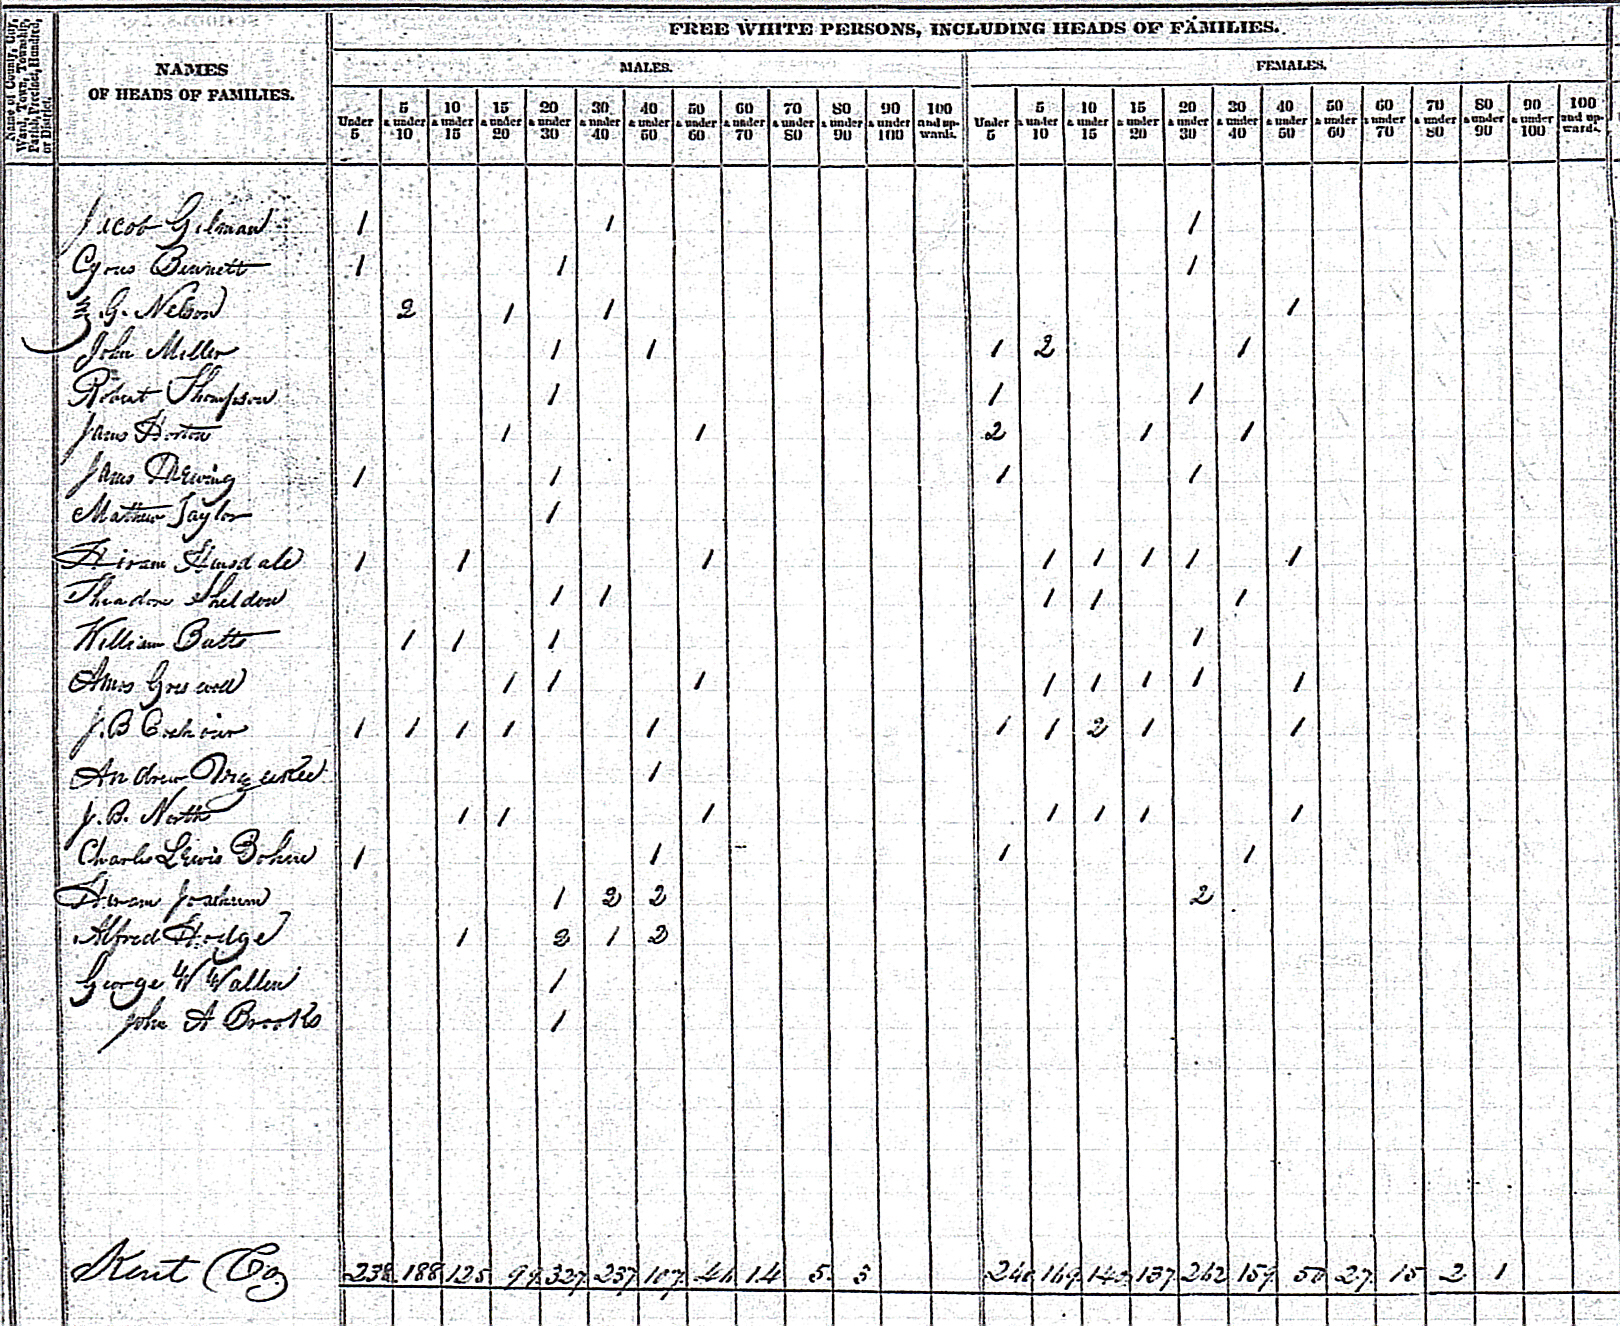 Name of County, City, Ward, Town, Township, Parish, Precinct, Hundred, or District.
NAMES OF HEADS OF FAMILIES.
FREE WHITE PERSONS, INCLUDING HEADS OF FAMILIES.
MALES. FEMALES.
Under 5 5 & under 10 10 & under 15 15 & under 20 20 & under 30 30 & under 40 40 & under 50 50 & under 60 60 & under 70 70 & under 80 80 & under 90 90 & under 100 100 and upwards. Under 5 5 & under 10 10 & under 15 15 & under 20 20 & under 30 30 & under 40 40 & under 50 50 & under 60 60 & under 70 70 & under 80 80 & under 90 90 & under 100 100 and upwards.
Jacob Gilman 1 1 1
Cyrus Bennett 1 1 1
G. Nelson 2 1 1 1
John Miller 1 1 1 2 1
Robert Thompson 1 1 1
James Horton 1 1 2 1 1
James 1 1 1 1
Mathew Taylor 1
Hiram Hinsdale 1 1 1 1 1 1 1 1
Theadore Sheldon 1 1 1 1 1
William Batts 1 1 1 1
Amos 1 1 1 1 1 1 1 1
J. B 1 1 1 1 1 1 1 2 1 1
Andrew 1
J. B. North 1 1 1 1 1 1 1
Charles Lewis 1 1 1 1
Hiram 1 2 2 2
Alfred Hodge 1 2 1 2
George W Wallin 1
John A Brooks 1
Kent Co 238 188 125 99 327 257 107 14 5 5 137 262 159 50 27 15 2 1